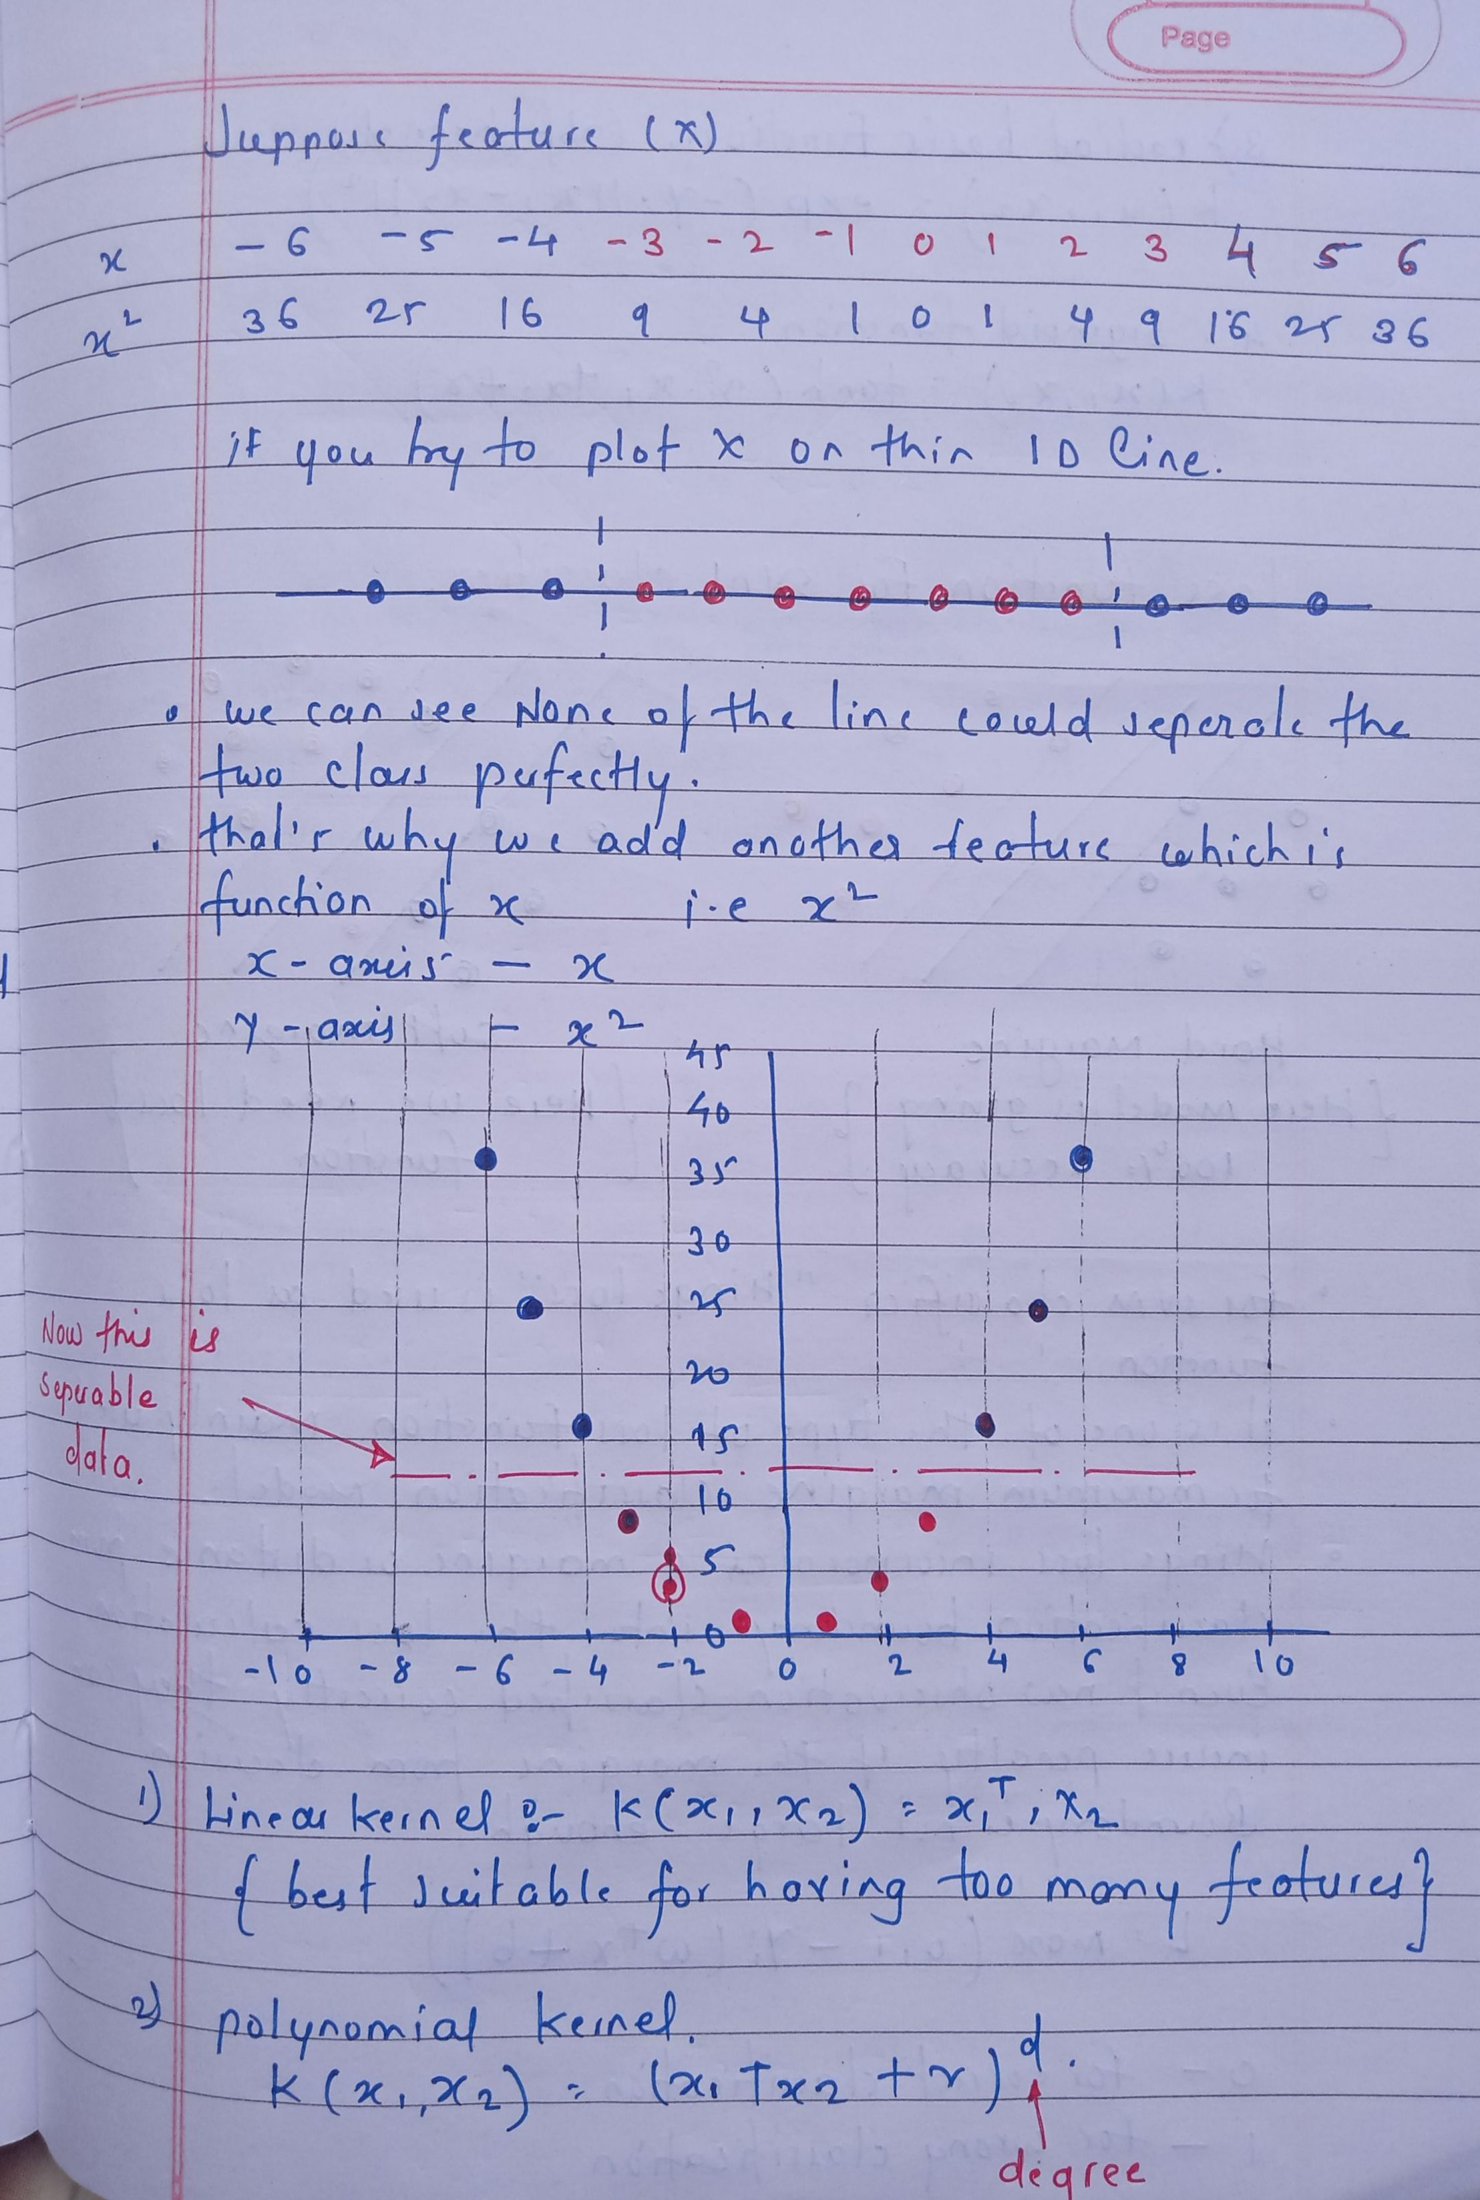 Page
Suppose feature (x)
x -6 -5 -4 -3 -2 -1 0 1 2 3 4 5 6
x² 36 25 16 9 4 1 0 1 4 9 16 25 36
if you try to plot x on thin 1D line.
• we can see None of the line could seperate the
two class perfectly.
• that's why we add another feature which is
function of x i.e x²
x-axis - x
y-axis - x²
45
40
35
30
25
Now this is
20
seperable
15
data.
10
5
0
-10 -8 -6 -4 -2 0 2 4 6 8 10
1) Linear kernel :- K(x₁, x₂) = x₁ᵀ, x₂
{ best suitable for having too many features}
2) polynomial kernel.
K(x₁, x₂) = (x₁ᵀx₂ + r)ᵈ.
degree